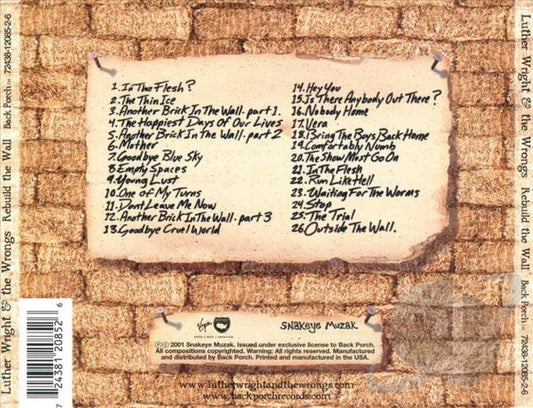 Luther Wright & the Wrongs Rebuild the Wall Back Porch 72438-12085-2-6
1. In The Flesh?
2. The Thin Ice
3. Another Brick In The Wall. part 1.
4. The Happiest Days Of Our Lives
5. Another Brick In The Wall. part 2
6. Mother
7. Goodbye Blue Sky
8. Empty Spaces
9. Young Lust
10. One of My Turns
11. Dont Leave Me Now
12. Another Brick In The Wall. part 3
13. Goodbye Cruel World
14. Hey You
15. Is There Anybody Out There?
16. Nobody Home
17. Vera
18. Bring The Boys Back Home
19. Comfortably Numb
20. The Show Must Go On
21. In The Flesh
22. Run Like Hell
23. Waiting For The Worms
24. Stop
25. The Trial
26. Outside The Wall.
Virgin
SNAKEYE MUZAK
℗© 2001 Snakeye Muzak. Issued under exclusive license to Back Porch.
All compositions copyrighted. Warning: All rights reserved. Manufactured
and distributed by Back Porch. Printed and manufactured in the USA.
www.lutherwrightandthewrongs.com
www.backporchrecords.com
7 24381 20852 6
Luther Wright & the Wrongs Rebuild the Wall Back Porch 72438-12085-2-6